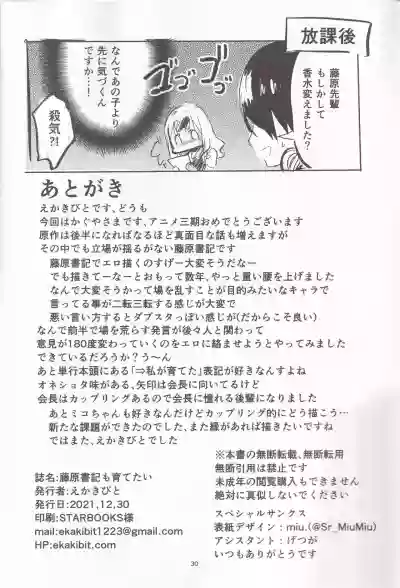 放課後
藤原先輩
もしかして
香水変えました?
ゴゴゴゴ
なんであの子より
先に気づくん
ですか…!
殺気?!
あとがき
えかきびとです、どうも
今回はかぐやさまです、アニメ三期おめでとうございます
原作は後半になればなるほど真面目な話も増えますが
その中でも立場が揺るがない藤原書記です
藤原書記でエロ描くのすげー大変そうだなー
でも描きてーなーとおもって数年、やっと重い腰を上げました
なんで大変そうかって場を乱すことが目的みたいなキャラで
言ってる事が二転三転する感じが大変で
悪い言い方するとダブスタっぽい感じが(だからこそ良い)
なんで前半で場を荒らす発言が後々人と関わって
意見が180度変わっていくのをエロに絡ませようとやってみました
できているだろうか?う〜ん
あと単行本頭にある「⇒私が育てた」表記が好きなんすよね
オネショタ味がある、矢印は会長に向いてるけど
会長はカップリングあるので会長に憧れる後輩になりました
あとミコちゃんも好きなんだけどカップリング的にどう描こう…
新たな課題ができたのでした、また縁があれば描きたいですね
ではまた、えかきびとでした
誌名:藤原書記も育てたい
発行者:えかきびと
発行日:2021,12,30
印刷:STARBOOKS様
mail:ekakibit1223@gmail.com
HP:ekakibit.com
※本書の無断転載、無断転用
無断引用は禁止です
未成年の閲覧購入もできません
絶対に真似しないでください
スペシャルサンクス
表紙デザイン:miu.(@Sr_MiuMiu)
アシスタント:げつが
いつもありがとうです
30